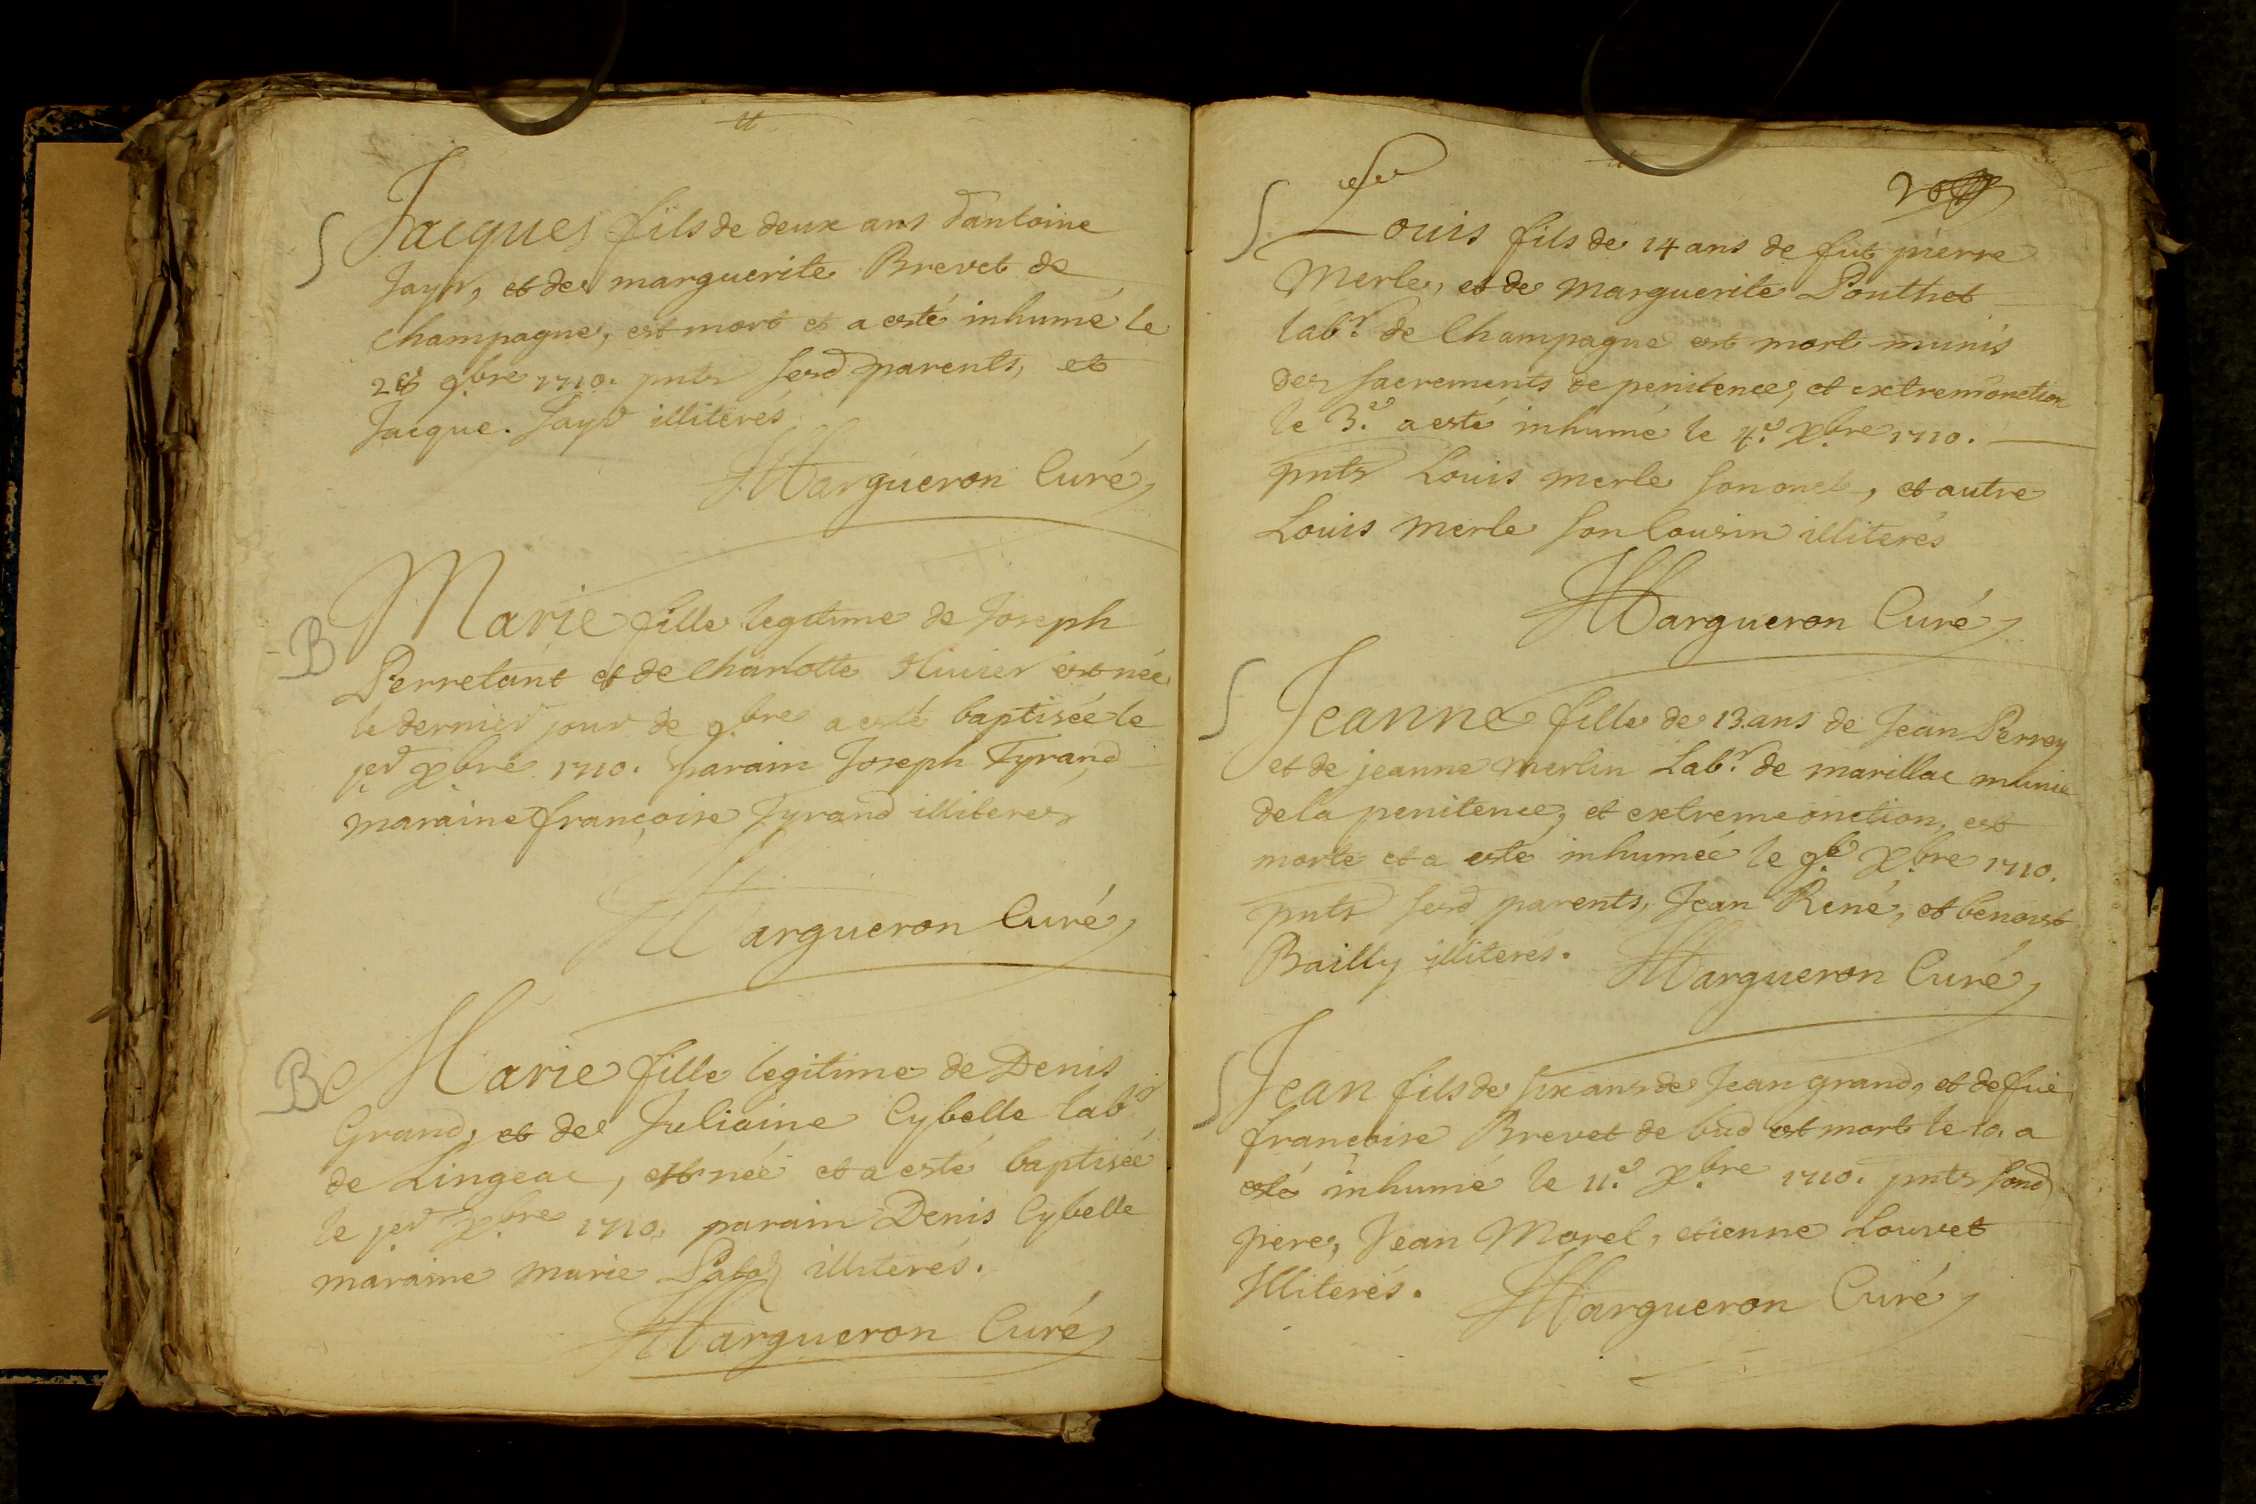 S Jacques fils de deux ans d'antoine
Jayr, et de marguerite Brevet de
champagne, est mort et a esté inhumé le
9.bre 1710. pnts sesd parents, et
Jacque. Jayr illiterés
Margueron Curé
B Marie fille legitime de Joseph
Perretant et de Charlotte Huvier est née
le dernier jour de 9.bre a esté baptisée le
per x.bre 1710. parain Joseph Tyrand
maraine françoise Tyrand illiteres
Margueron Curé
B Marie fille legitime de Denis
Grand, et de Juliaine Cybelle labr
de Lingeac, est née et a esté baptisée
le per x.bre 1710. parain Denis Cybelle
maraine marie illiterés.
Margueron Curé
S Louis fils de 14 ans de fut pierre
Merle, et de marguerite Pouthet
labr. de Champagne est mort munis
des sacrements de penitence, et extremonction
le 3.e a esté inhumé le 4.e x.bre 1710.
pnts Louis merle son oncl, et autre
Louis merle son Cousin illiterés
Margueron Curé
S Jeanne fille de 13. ans de Jean Perrey
et de jeanne merlin Labr. de marillac munie
de la penitence, et extreme onction, est
morte et a esté inhumée le 9.e x.bre 1710.
pnts sesd parents, Jean René, et benoist
Bailly illiterés. Margueron Curé
S Jean fils de six ans de Jean grand, et de fue
françoise Brevet de bud est mort le 10. a
esté inhumé le 11.e x.bre 1710. pnts sond
pere, Jean Morel, etienne Louvet
Illiterés. Margueron Curé